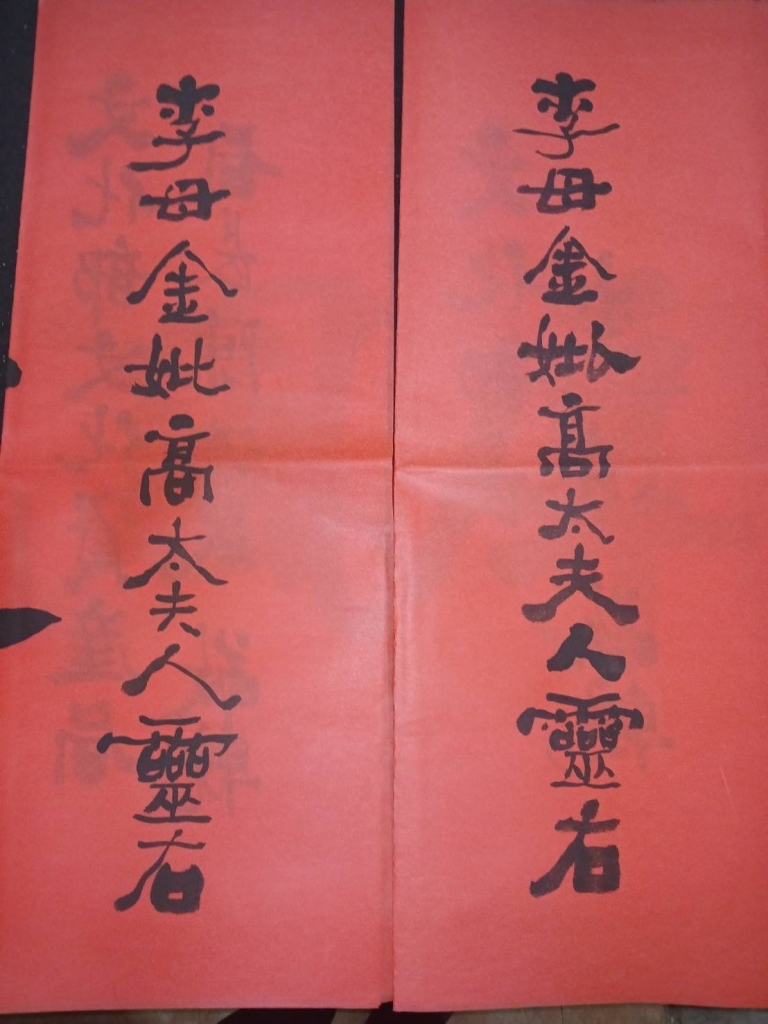 李母金妣高太夫人靈右
李母金妣高太夫人靈右